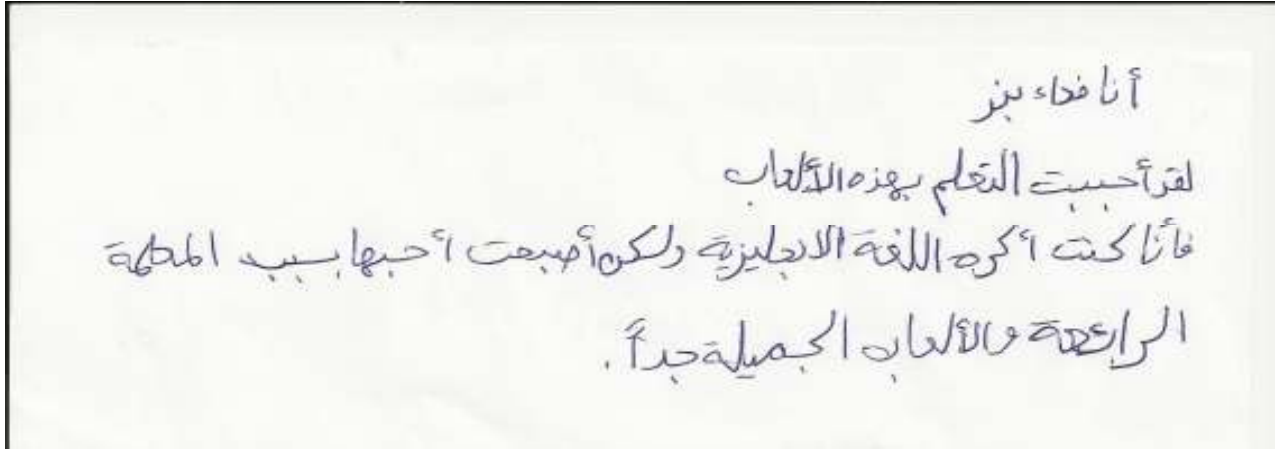 أنا فداء بنر
لقد أحببت التعلم بهذه الألعاب
فأنا كنت أكره اللغة الانجليزية ولكن أصبحت أحبها بسبب المعلمة
الرائعة والألعاب الجميلة جداً.